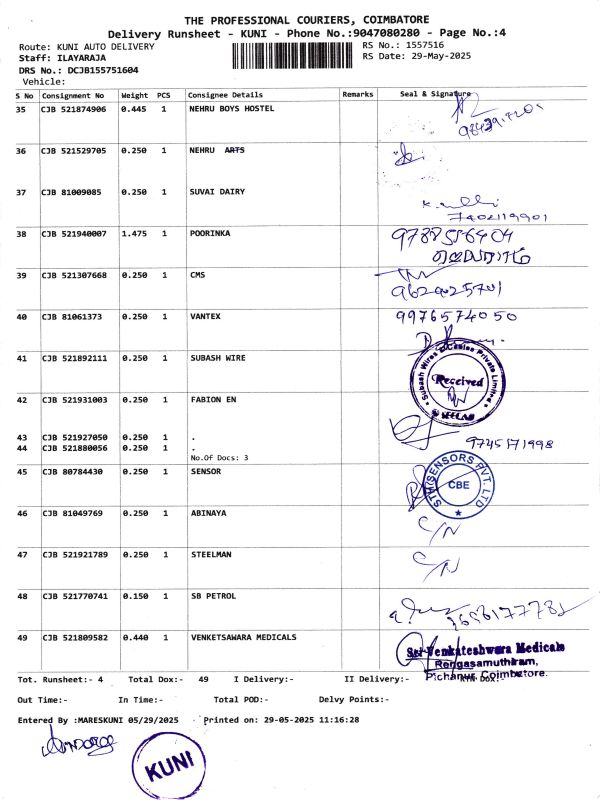 THE PROFESSIONAL COURIERS, COIMBATORE
Delivery Runsheet - KUNI - Phone No.:9047080280 - Page No.:4
Route: KUNI AUTO DELIVERY
RS No.: 1557516
Staff: ILAYARAJA
RS Date: 29-May-2025
DRS No.: DCJB155751604
Vehicle:
S No Consignment No Weight PCS Consignee Details Remarks Seal & Signature
35 CJB 521874906 0.445 1 NEHRU BOYS HOSTEL
36 CJB 521529705 0.250 1 NEHRU ARTS
37 CJB 81009085 0.250 1 SUVAI DAIRY
7402119901
38 CJB 521940007 1.475 1 POORINKA
9788556404
39 CJB 521307668 0.250 1 CMS
40 CJB 81061373 0.250 1 VANTEX 9976574050
41 CJB 521892111 0.250 1 SUBASH WIRE
Subash Wires & Cables Private Limited
Received
42 CJB 521931003 0.250 1 FABION EN
43 CJB 521927050 0.250 1 .
44 CJB 521880056 0.250 1 .
9745171998
No.Of Docs: 3
45 CJB 80784430 0.250 1 SENSOR
SENSORS PVT. LTD
CBE
46 CJB 81049769 0.250 1 ABINAYA C/N
47 CJB 521921789 0.250 1 STEELMAN C/N
48 CJB 521770741 0.150 1 SB PETROL
49 CJB 521809582 0.440 1 VENKETSAWARA MEDICALS
Sri Venkateshwara Medicals
Rengasamuthiram,
Pichanur, Coimbatore.
Tot. Runsheet:- 4 Total Dox:- 49 I Delivery:- II Delivery:-
Out Time:- In Time:- Total POD:- Delvy Points:-
Entered By :MARESKUNI 05/29/2025 Printed on: 29-05-2025 11:16:28
KUNI